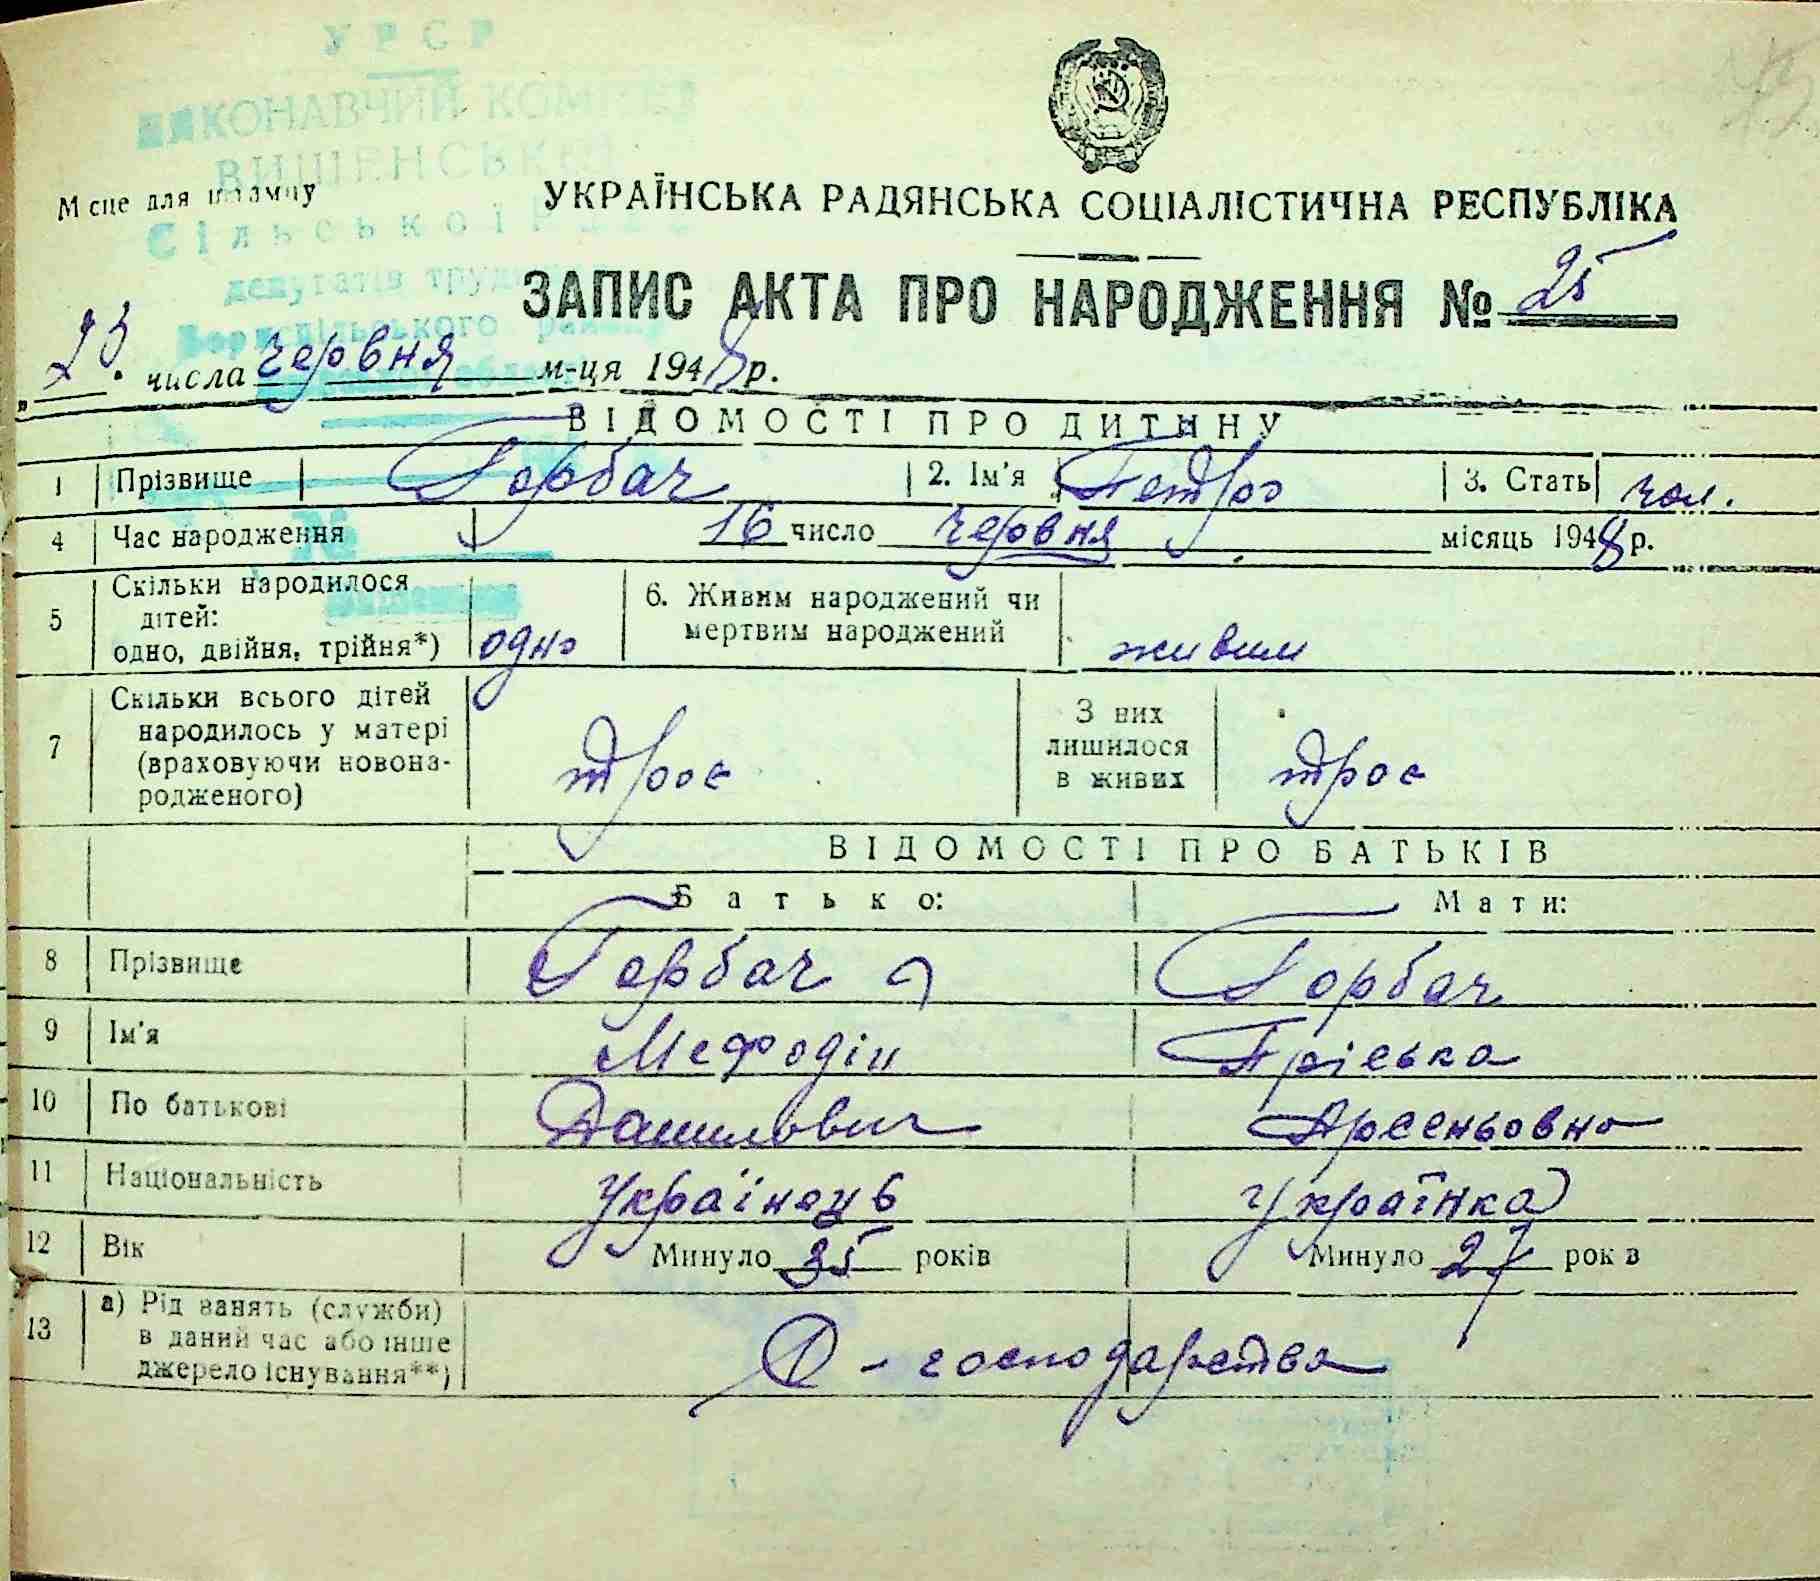 УРСР
ВИКОНАВЧИЙ КОМІТЕТ
ВИШЕНСЬКОЇ
Сільської Ради
депутатів трудящих
Бориспільського району
Місце для штампу
УКРАЇНСЬКА РАДЯНСЬКА СОЦІАЛІСТИЧНА РЕСПУБЛІКА
ЗАПИС АКТА ПРО НАРОДЖЕННЯ № 25
„23" числа червня м-ця 1948 р.
ВІДОМОСТІ ПРО ДИТИНУ
1 Прізвище Горбач 2. Ім'я Петро 3. Стать чол.
4 Час народження 16 число червня місяць 1948 р.
5 Скільки народилося дітей: одно, двійня, трійня*) одно 6. Живим народжений чи мертвим народжений живим
7 Скільки всього дітей народилось у матері (враховуючи новонародженого) троє З них лишилося в живих троє
ВІДОМОСТІ ПРО БАТЬКІВ
Батько: Мати:
8 Прізвище Горбач Горбач
9 Ім'я Мефодій Пріська
10 По батькові Данилович Арсеньовна
11 Національність Українець Українка
12 Вік Минуло 35 років Минуло 27 років
13 а) Рід занять (служби) в даний час або інше джерело існування**) - господарства